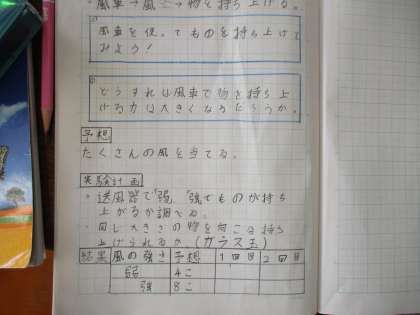 ・風車→風→物を持ち上げる。
風車を使ってものを持ち上げて
みよう!
どうすれば風車で物を持ち上
げる力は大きくなるだろうか。
予想
たくさんの風を当てる。
実験計画
・送風器で「弱」「強」でものが持ち
上がるか調べる。
・同じ大きさの物を何こ持ち
上げられるか。(ガラス玉)
結果 風の強さ 予想 1回目 2回目
弱 4こ
強 8こ